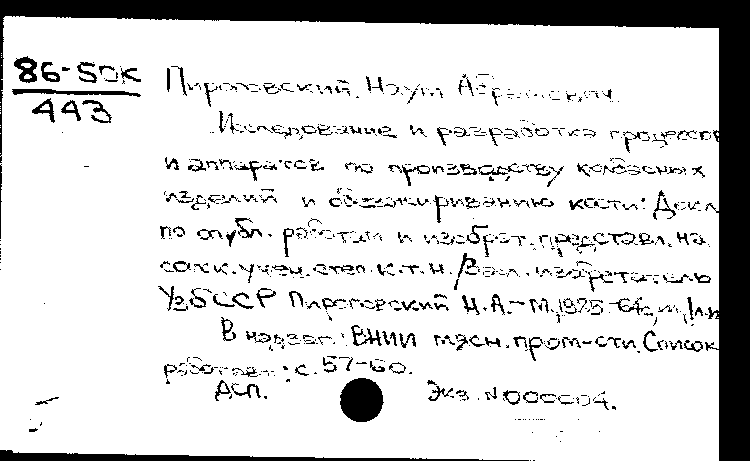 86-50к
443
Пироговский, Наум Абрамович.
Исследование и разработка процессов
и аппаратов по производству колбасных
изделий и обезжириванию кости: Докл.
по опубл. работам и изобрет., представл. на
соиск. учен. степ. к.т.н. / Засл. изобретатель
УзбССР Пироговский Н.А. - М., 1975. - 64с.,
В надзаг.: ВНИИ мясн. пром-сти. Список
работ авт.: с. 57-60.
ДСП. Экз. N 000004.